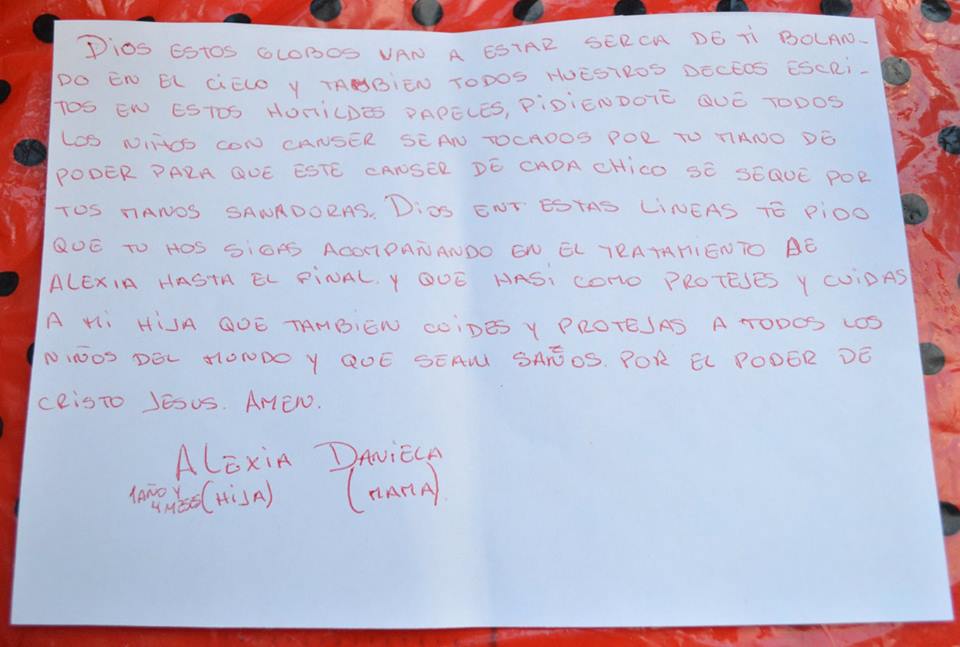 DIOS ESTOS GLOBOS VAN A ESTAR SERCA DE TI BOLAN-
DO EN EL CIELO Y TAMBIEN TODOS NUESTROS DECEOS ESCRI-
TOS EN ESTOS HUMILDES PAPELES, PIDIENDOTE QUE TODOS
LOS NIÑOS CON CANSER SEAN TOCADOS POR TU MANO DE
PODER PARA QUE ESTE CANSER DE CADA CHICO SE SEQUE POR
TUS MANOS SANADORAS. DIOS ENT ESTAS LINEAS TE PIDO
QUE TU NOS SIGAS ACOMPAÑANDO EN EL TRATAMIENTO DE
ALEXIA HASTA EL FINAL. Y QUE HASI COMO PROTEJES Y CUIDAS
A MI HIJA QUE TAMBIEN CUIDES Y PROTEJAS A TODOS LOS
NIÑOS DEL MUNDO Y QUE SEAN SANOS. POR EL PODER DE
CRISTO JESUS. AMEN.
ALEXIA DANIELA
1 AÑO Y
4 MESES (HIJA) (MAMA).